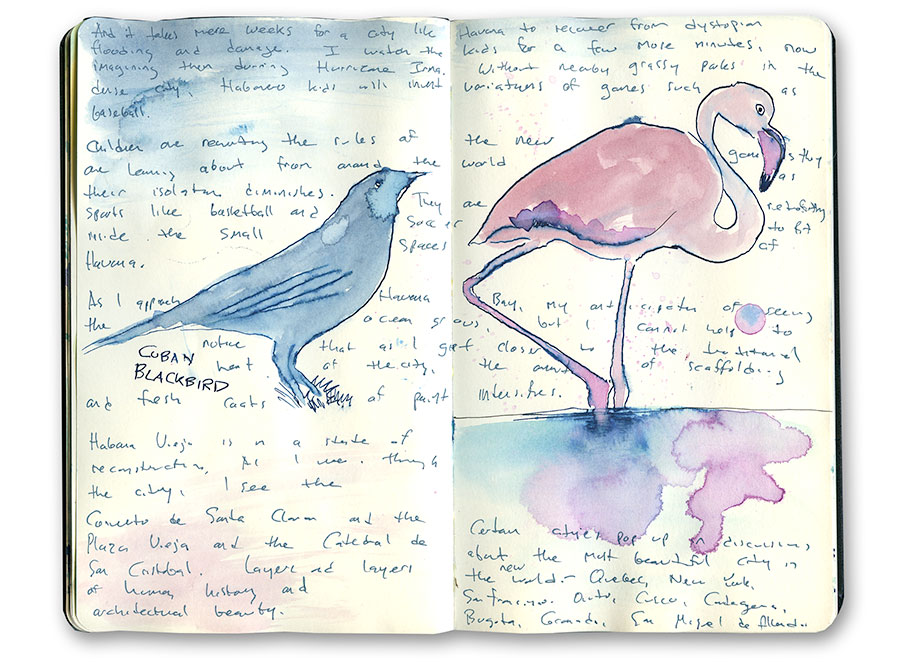 And it takes mere weeks for a city like Havana to recover from dystopian
flooding and damage. I watch the kids for a few more minutes, now
imagining them during Hurricane Irma. Without nearby grassy parks in the
dense city, Habanero kids will invent variations of games such as
baseball.
Children are rewriting the rules of the new games they
are learning about from around the world as
their isolation diminishes. They are retrofitting
sports like basketball and soccer to fit
inside the small spaces of
Havana.
As I approach Havana Bay, my anticipation of seeing
the ocean grows, but I cannot help to
notice that as I get closer to the
heart of the city, the amount of scaffolding
and fresh coats of paint intensifies.
CUBAN
BLACKBIRD
Habana Vieja is in a state of
reconstruction. As I move through
the city, I see the
Convento de Santa Clara and the
Plaza Vieja and the Catedral de
San Cristobal. Layers and layers
of human history and
architectural beauty.
Certain cities pop up in discussions
about the most beautiful city in
the new world - Quebec, New York,
San Francisco, Quito, Cusco, Cartagena,
Bogota, Granada, San Miguel de Allende